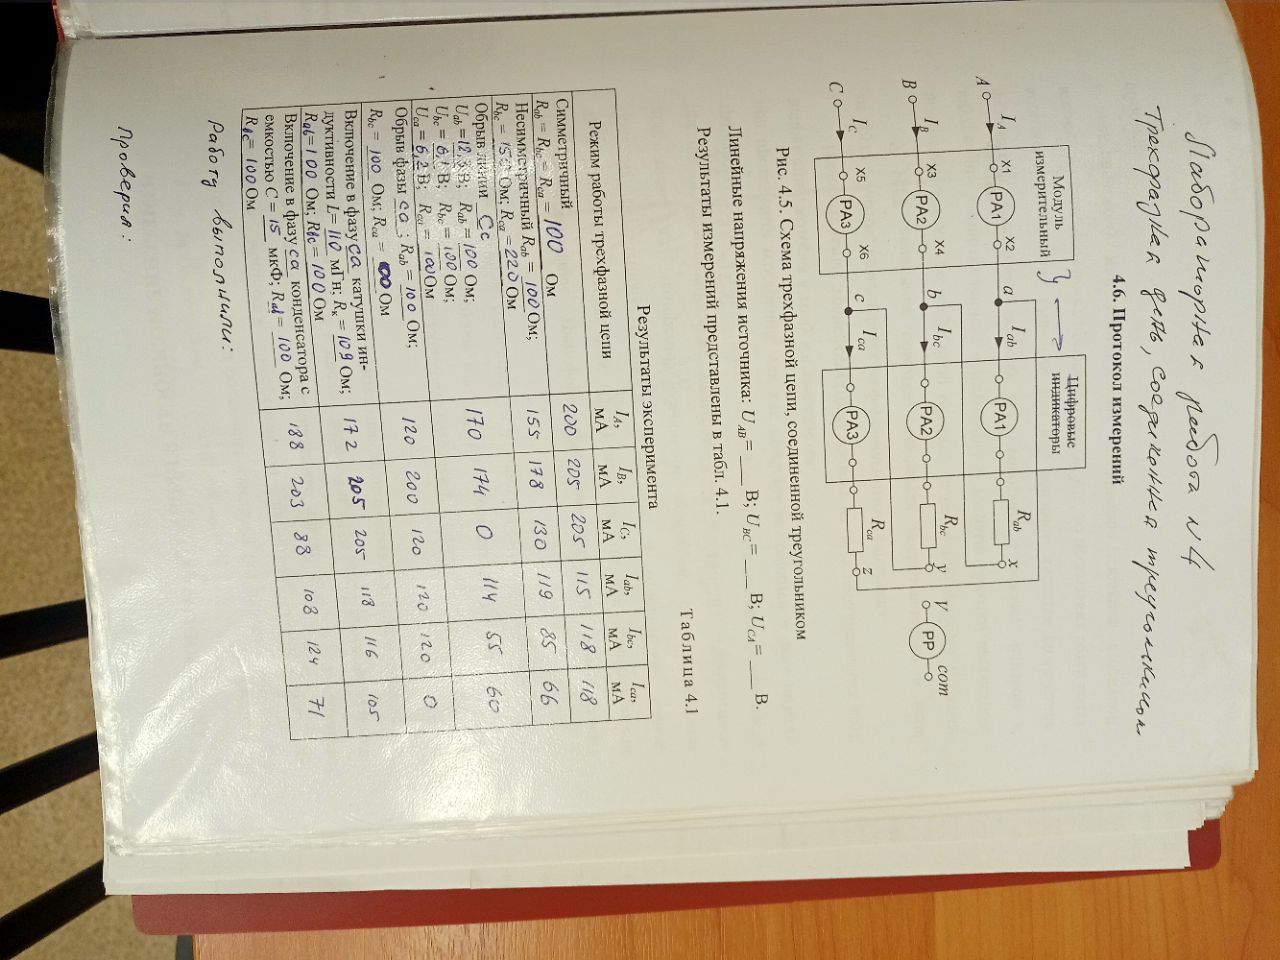 Лабораторная работа №4
Трехфазная цепь, соединенная треугольником
4.6. Протокол измерений
Модуль измерительный
Цифровые индикаторы
A I_A X1 PA1 X2 a I_ab PA1 R_ab x
B I_B X3 PA2 X4 b I_bc PA2 R_bc y V PP com
C I_C X5 PA3 X6 c I_ca PA3 R_ca z
Рис. 4.5. Схема трехфазной цепи, соединенной треугольником
Линейные напряжения источника: U_AB= ___ В; U_BC= ___ В; U_CA= ___ В.
Результаты измерений представлены в табл. 4.1.
Таблица 4.1
Результаты эксперимента
Режим работы трехфазной цепи I_A, мА I_B, мА I_C, мА I_ab, мА I_bc, мА I_ca, мА
Симметричный
R_ab = R_bc = R_ca = 100 Ом 200 205 205 115 118 118
Несимметричный R_ab = 100 Ом;
R_bc = 150 Ом; R_ca = 220 Ом 155 178 130 119 85 66
Обрыв линии Cc
U_ab = 12,3 В; R_ab = 100 Ом;
U_bc = 6,1 В; R_bc = 100 Ом;
U_ca = 6,2 В; R_ca = 100 Ом 170 174 0 114 55 60
Обрыв фазы ca; R_ab = 100 Ом;
R_bc = 100 Ом; R_ca = Ом 120 200 120 120 120 0
Включение в фазу ca катушки ин-
дуктивности L= 110 мГн; R_к = 109 Ом;
R_ab=100 Ом; R_bc=100 Ом 172 205 205 118 116 105
Включение в фазу ca конденсатора с
емкостью C = 15 мкФ; R_ab = 100 Ом;
R_bc= 100 Ом 188 203 88 108 124 71
Работу выполнили:
Проверил: